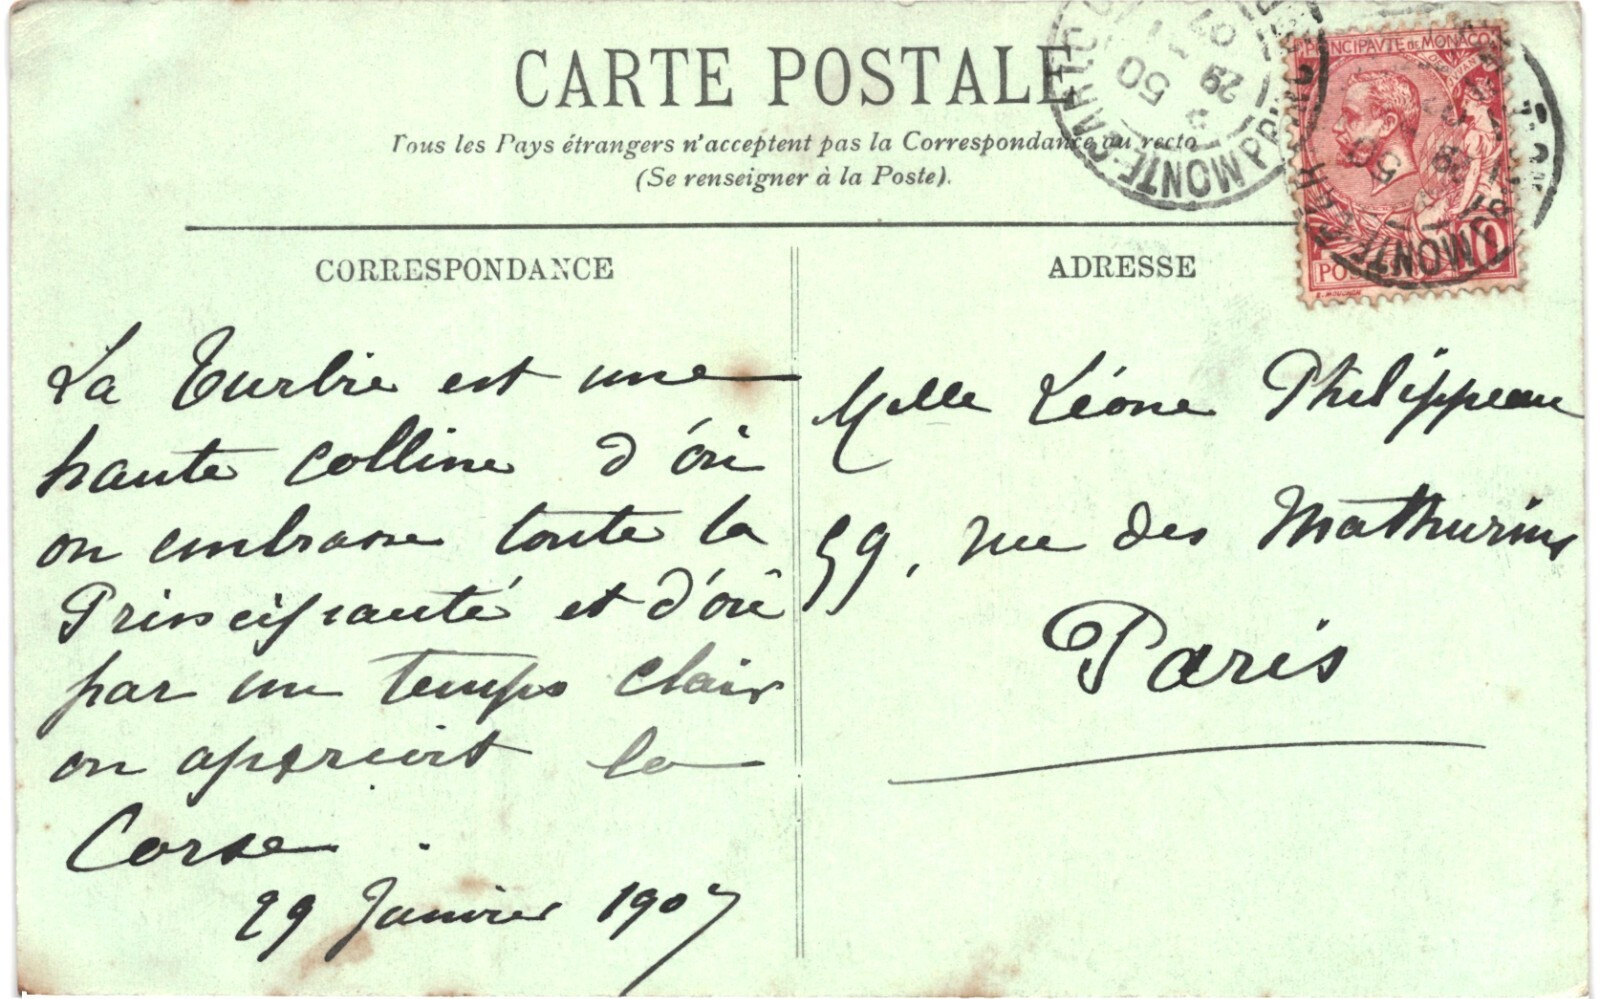 CARTE POSTALE
Tous les Pays étrangers n'acceptent pas la Correspondance au recto
(Se renseigner à la Poste).
CORRESPONDANCE
ADRESSE
PRINCIPAVTE DE MONACO
POSTES
10
MONTE-CARLO
PRINC
50
29
07
La Turbie est une
haute colline d'où
on embrasse toute la
Principauté et d'où
par un temps clair
on aperçoit la
Corse.
29 Janvier 1907
Melle Léone Philippeau
59, rue des Mathurins
Paris